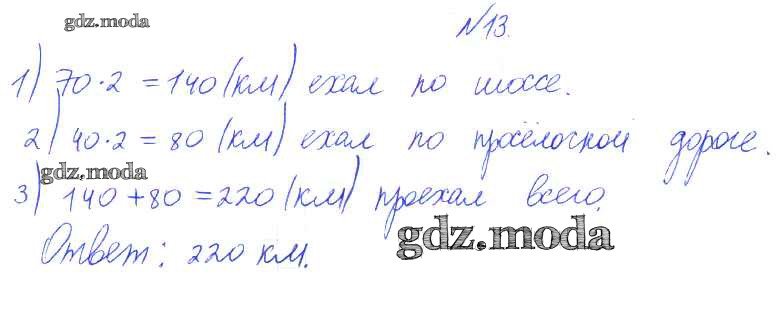 gdz.moda
№13.
1) 70·2 = 140 (км) ехал по шоссе.
2) 40·2 = 80 (км) ехал по просёлочной дороге.
gdz.moda
3) 140 + 80 = 220 (км) проехал всего.
Ответ: 220 км.
gdz.moda